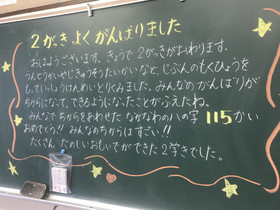 2がっき よく がんばりました
おはようございます。きょうで2がっきがおわります。
うんどうかいやじきゅうそうたいかいなど、じぶんのもくひょうを
もっていっしょうけんめいとりくみました。みんなのがんばりが
ちからになって、できるようになったことがふえたね。
みんなで ちからをあわせた なかなわの八の字 115かい
おめでとう!! みんなのちからはすごい!!
たくさん たのしいおもいでができた2学きでした。